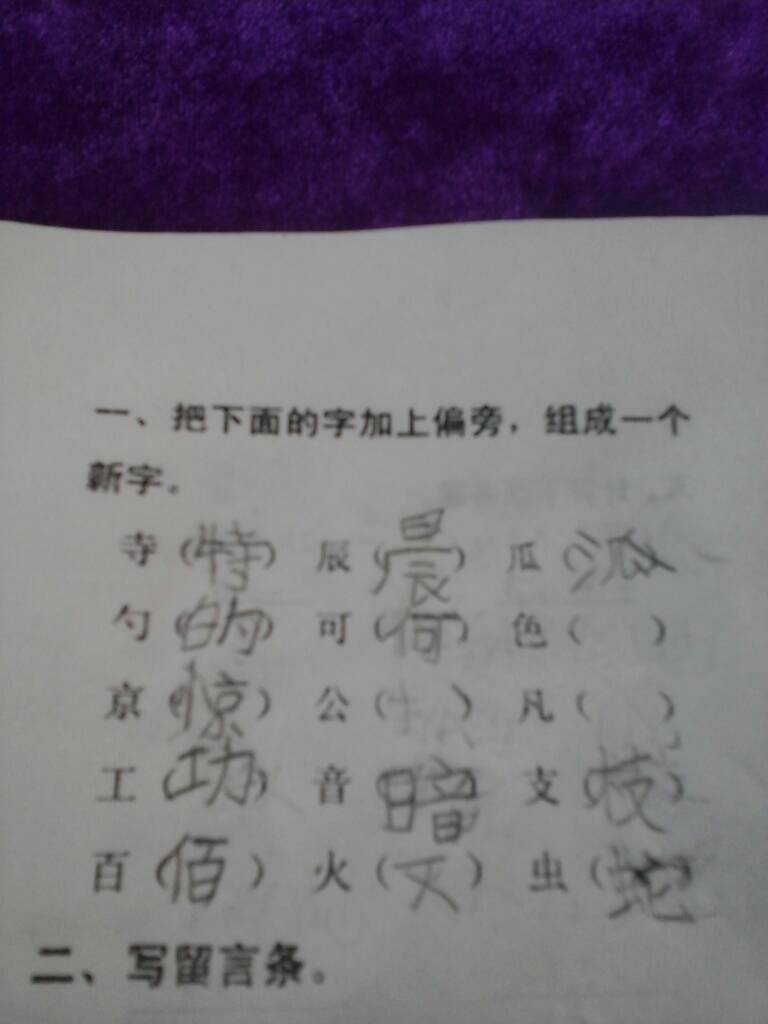 一、把下面的字加上偏旁，组成一个
新字。
寺（特） 辰（晨） 瓜（
勺（的） 可（何） 色（ ）
京（惊） 公（ ） 凡（ ）
工（功） 音（暗） 支（技）
百（佰） 火（ ） 虫（蛇）
二、写留言条。